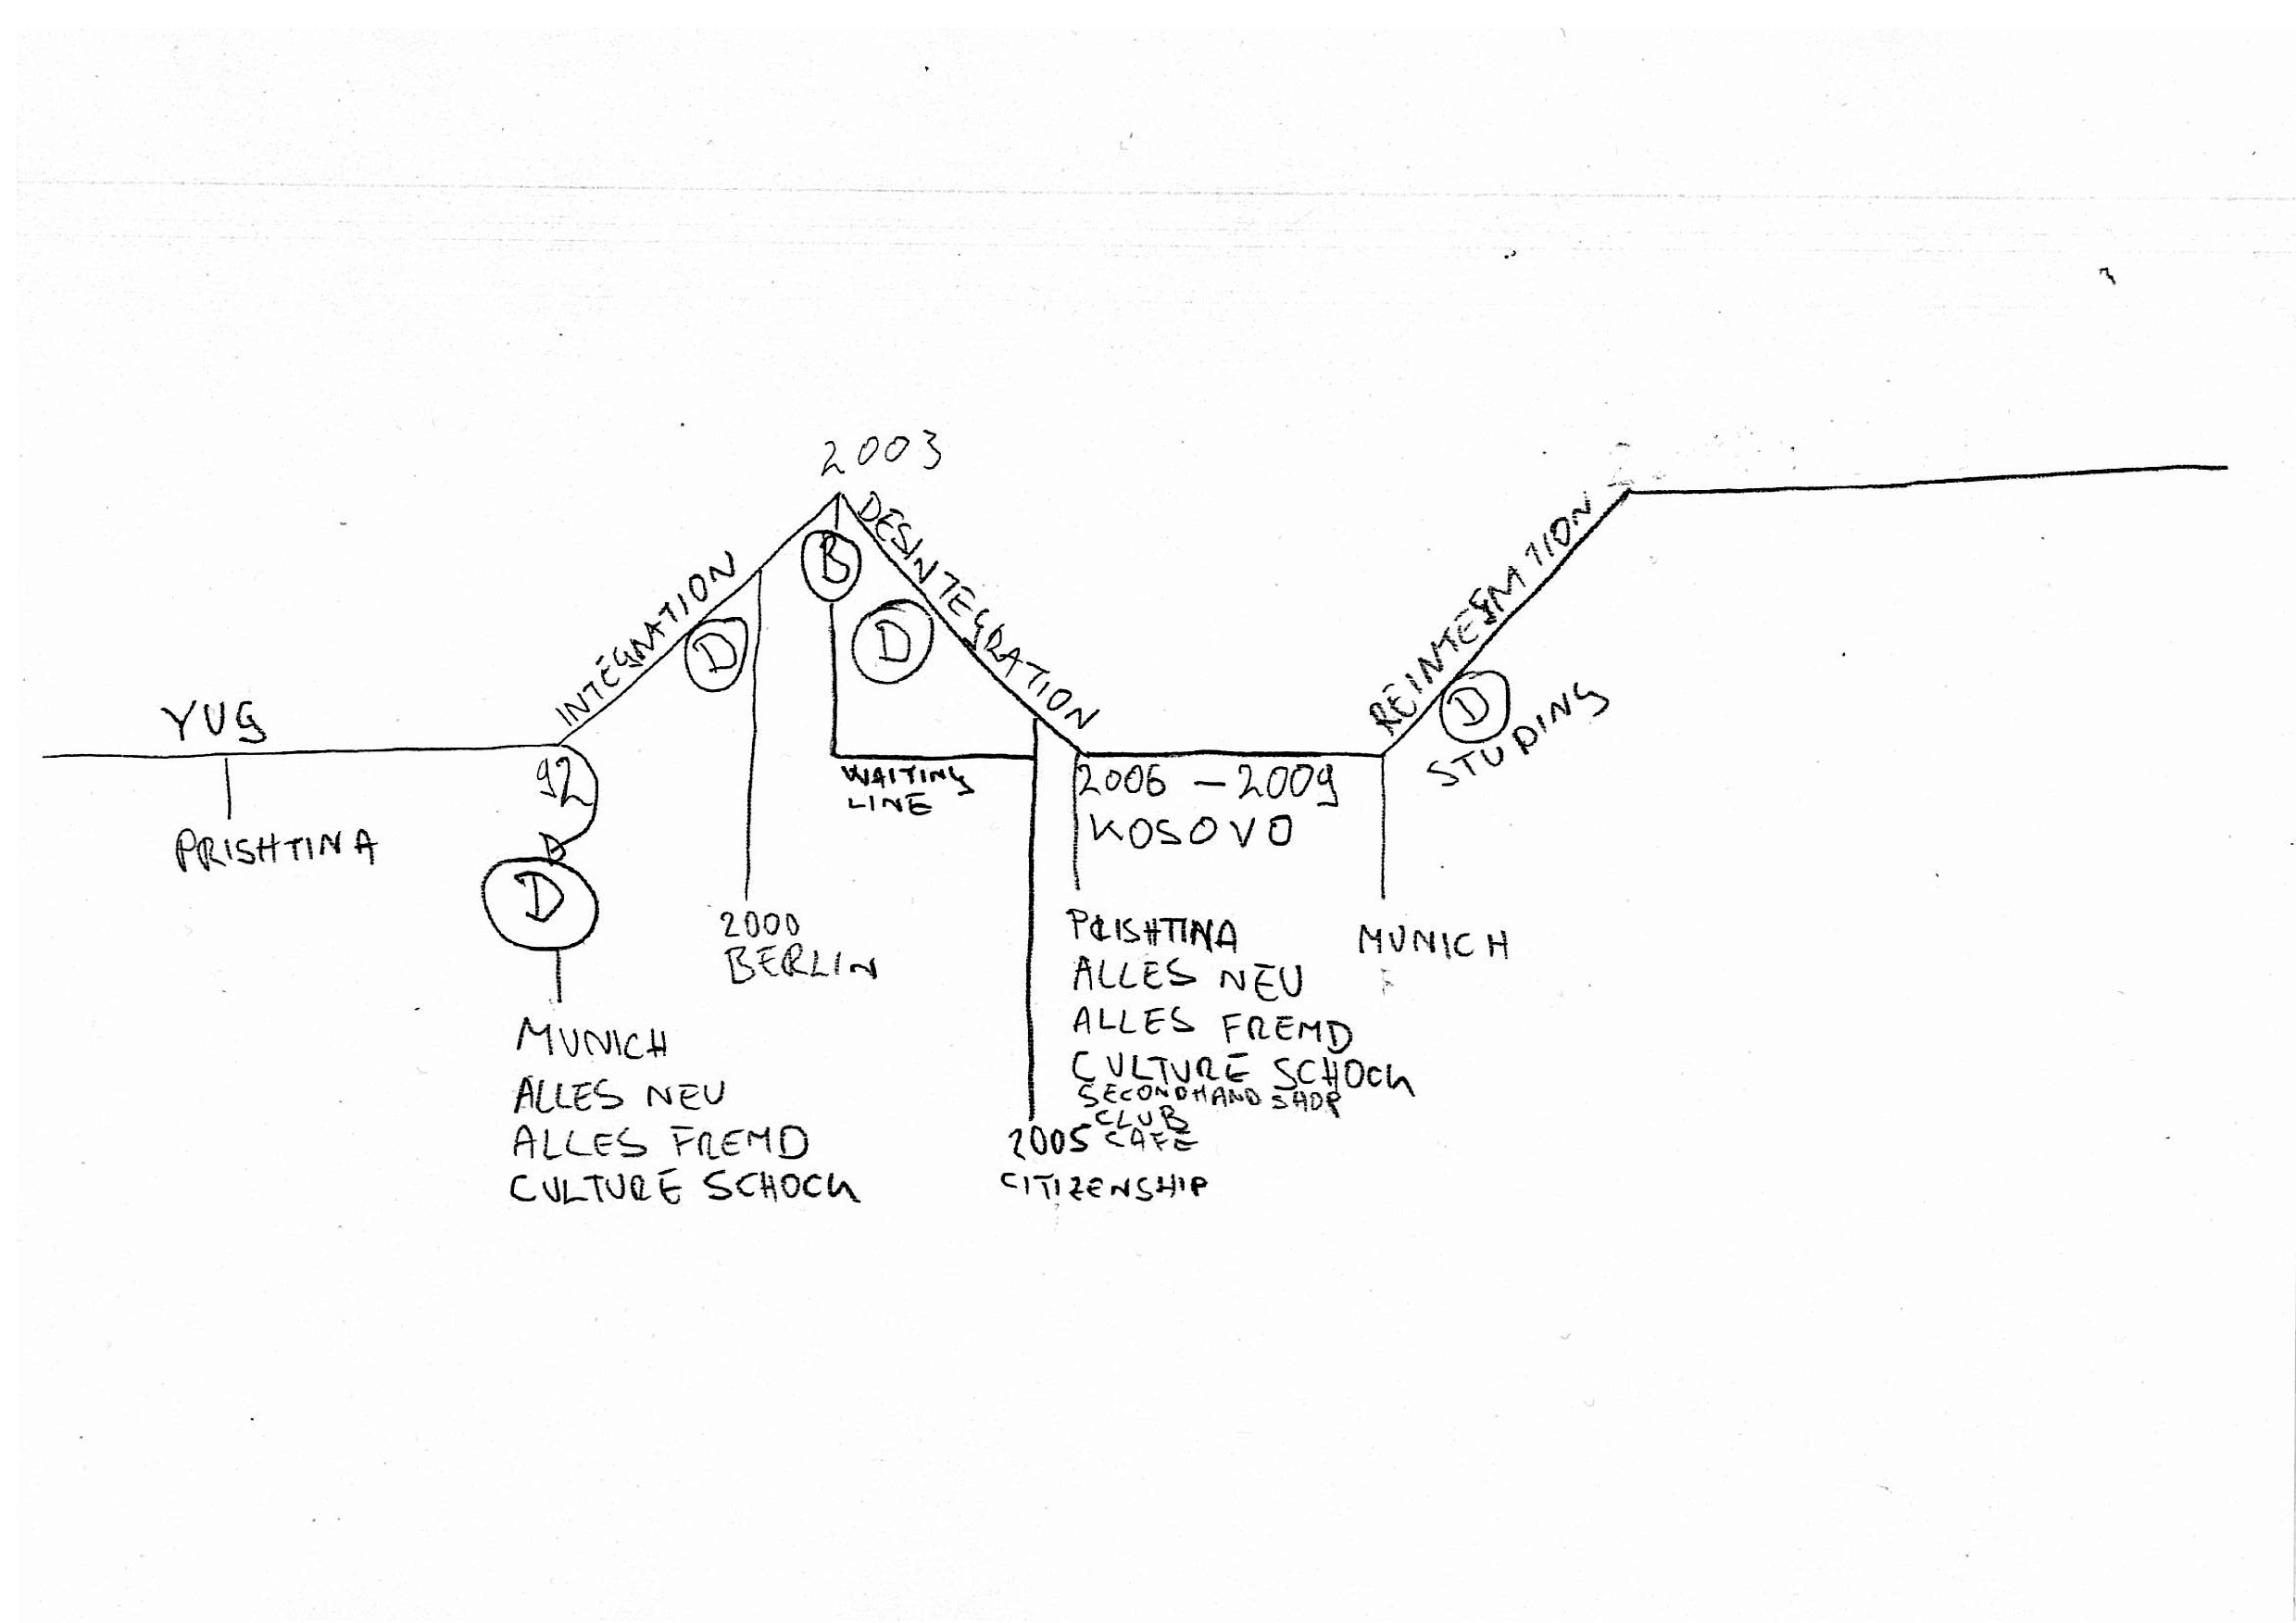 2003
YUG
PRISHTINA
INTEGRATION
D
92
D
MUNICH
ALLES NEU
ALLES FREMD
CULTURE SCHOCK
2000
BERLIN
B
D
DESINTEGRATION
WAITING
LINE
2005
CITIZENSHIP
2006 – 2009
KOSOVO
PRISHTINA
ALLES NEU
ALLES FREMD
CULTURE SCHOCK
SECONDHAND SHOP
CLUB
CAFE
MUNICH
REINTEGRATION
D
STUDING